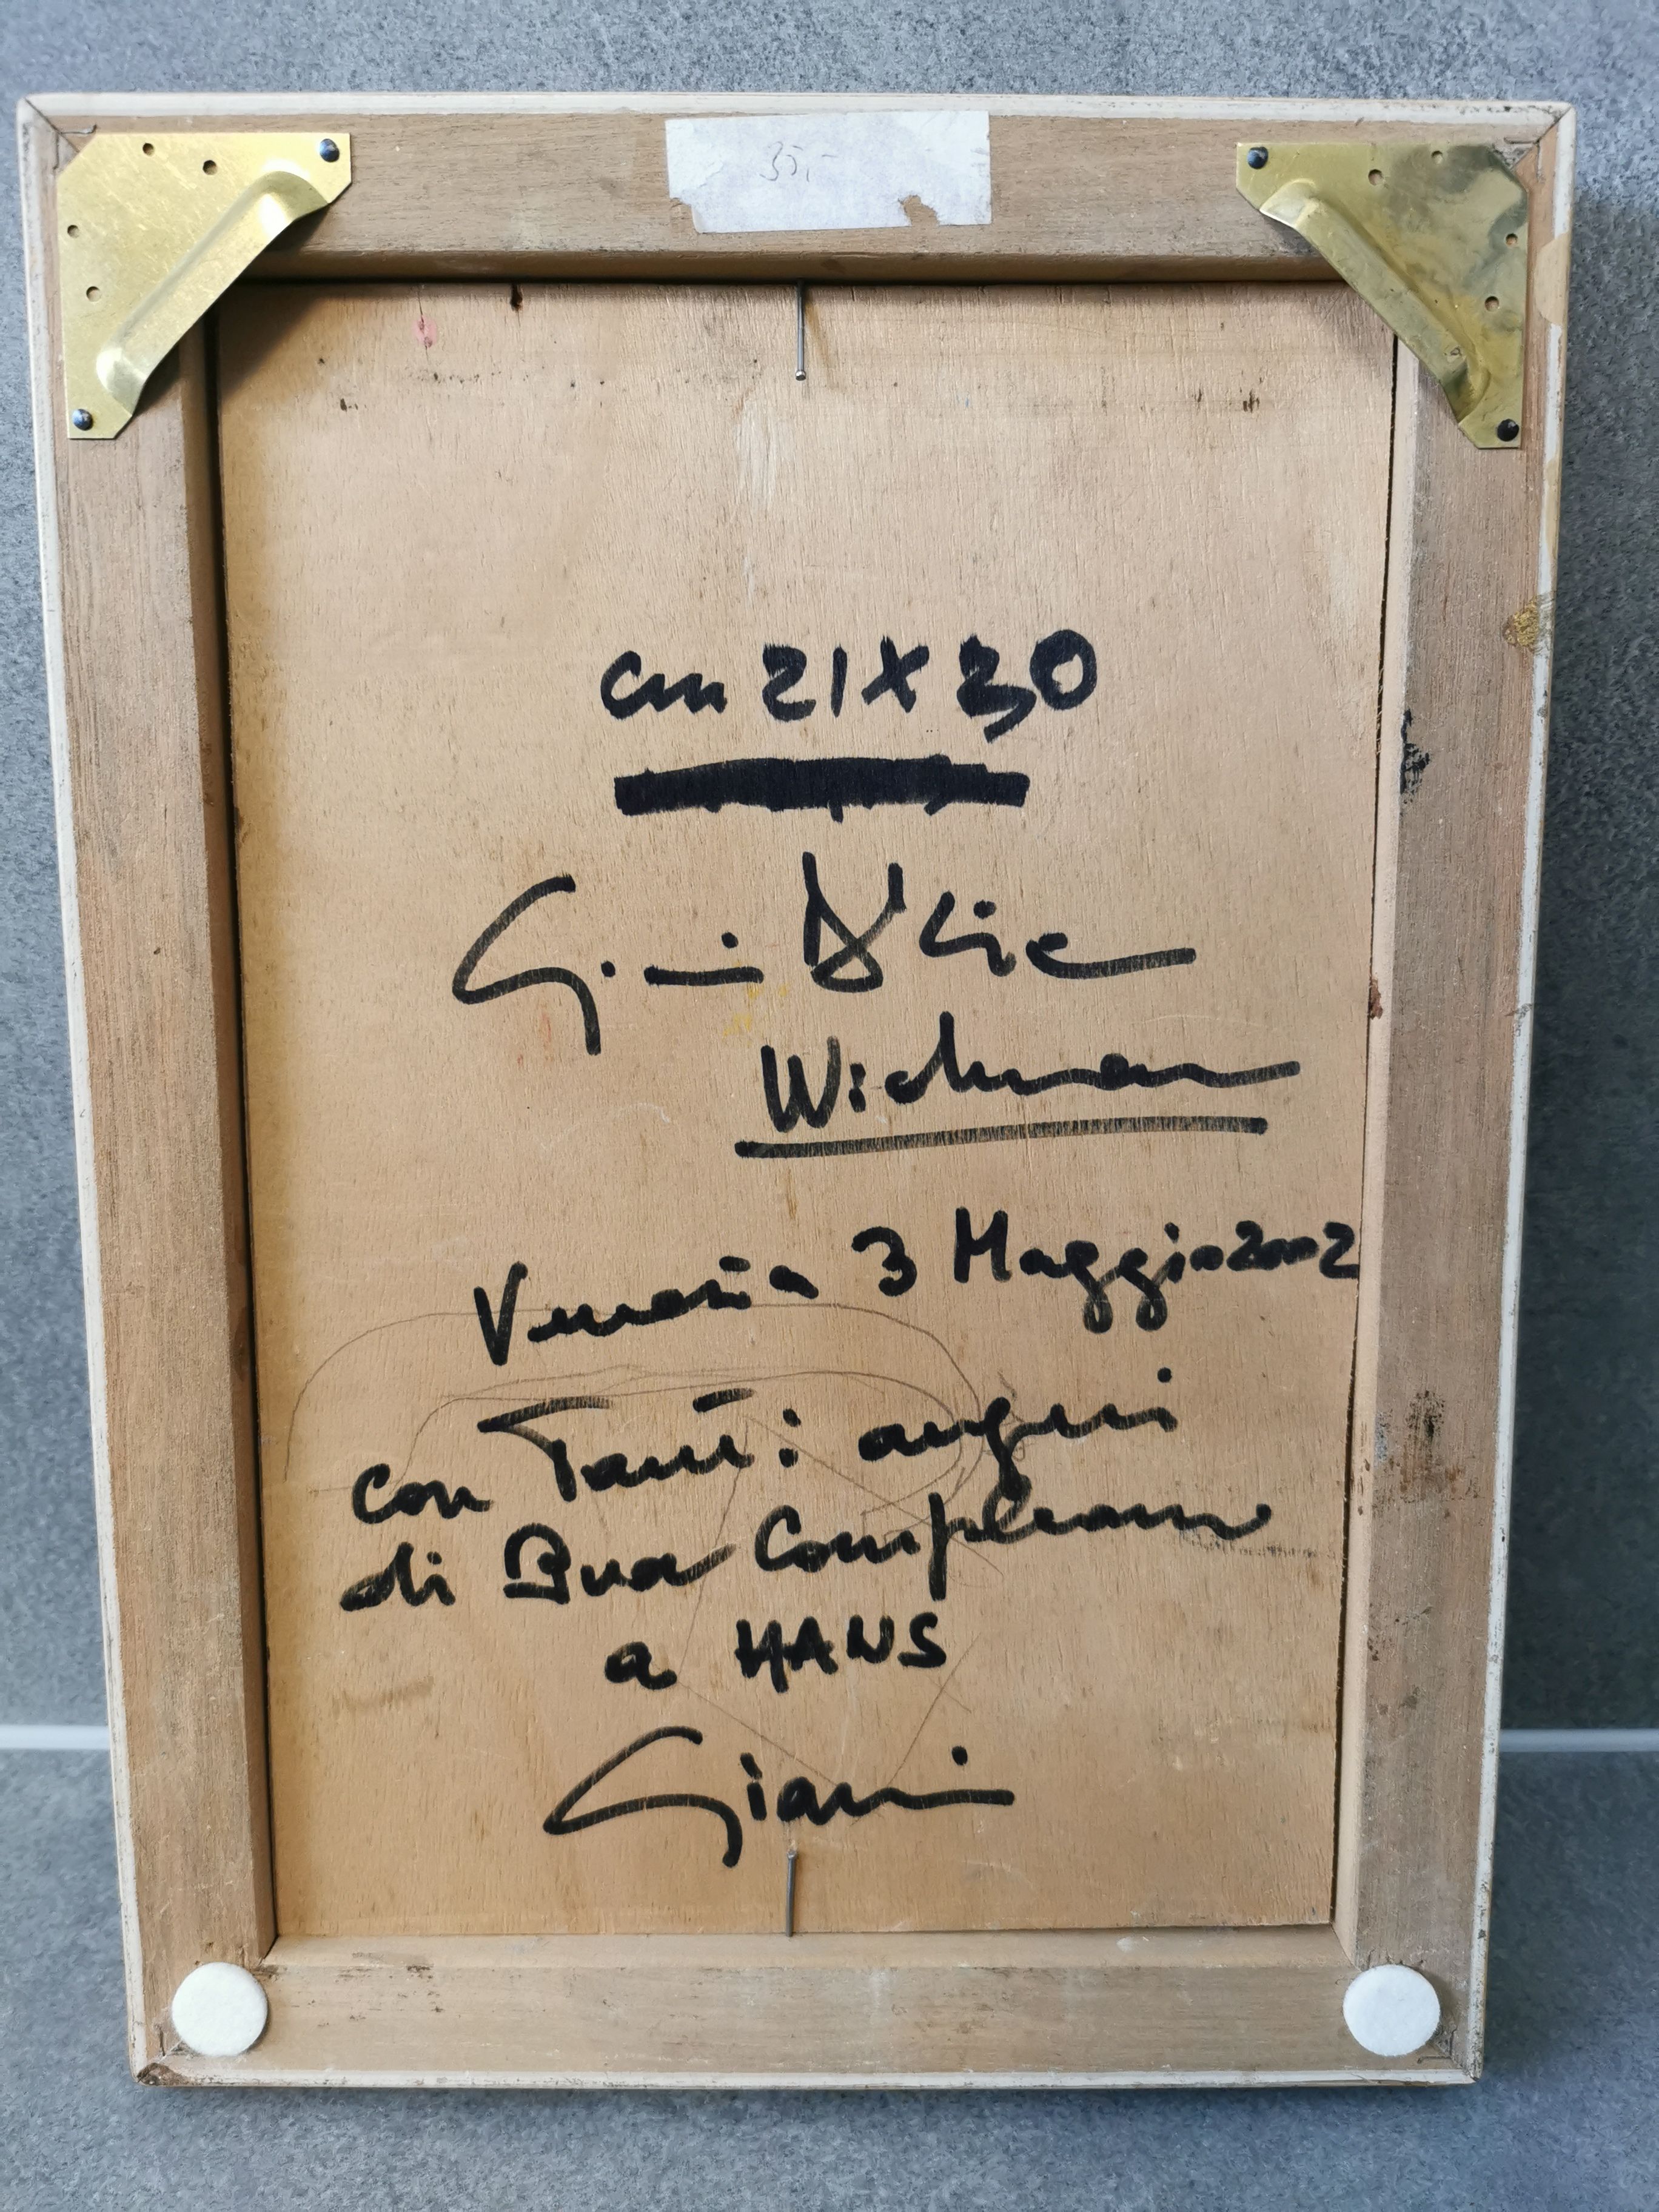 35,-
cm 21 x 30
Wichman
Venezia 3 Maggio 2002
con Tanti auguri
di Buon Compleanno
a HANS
Gianni